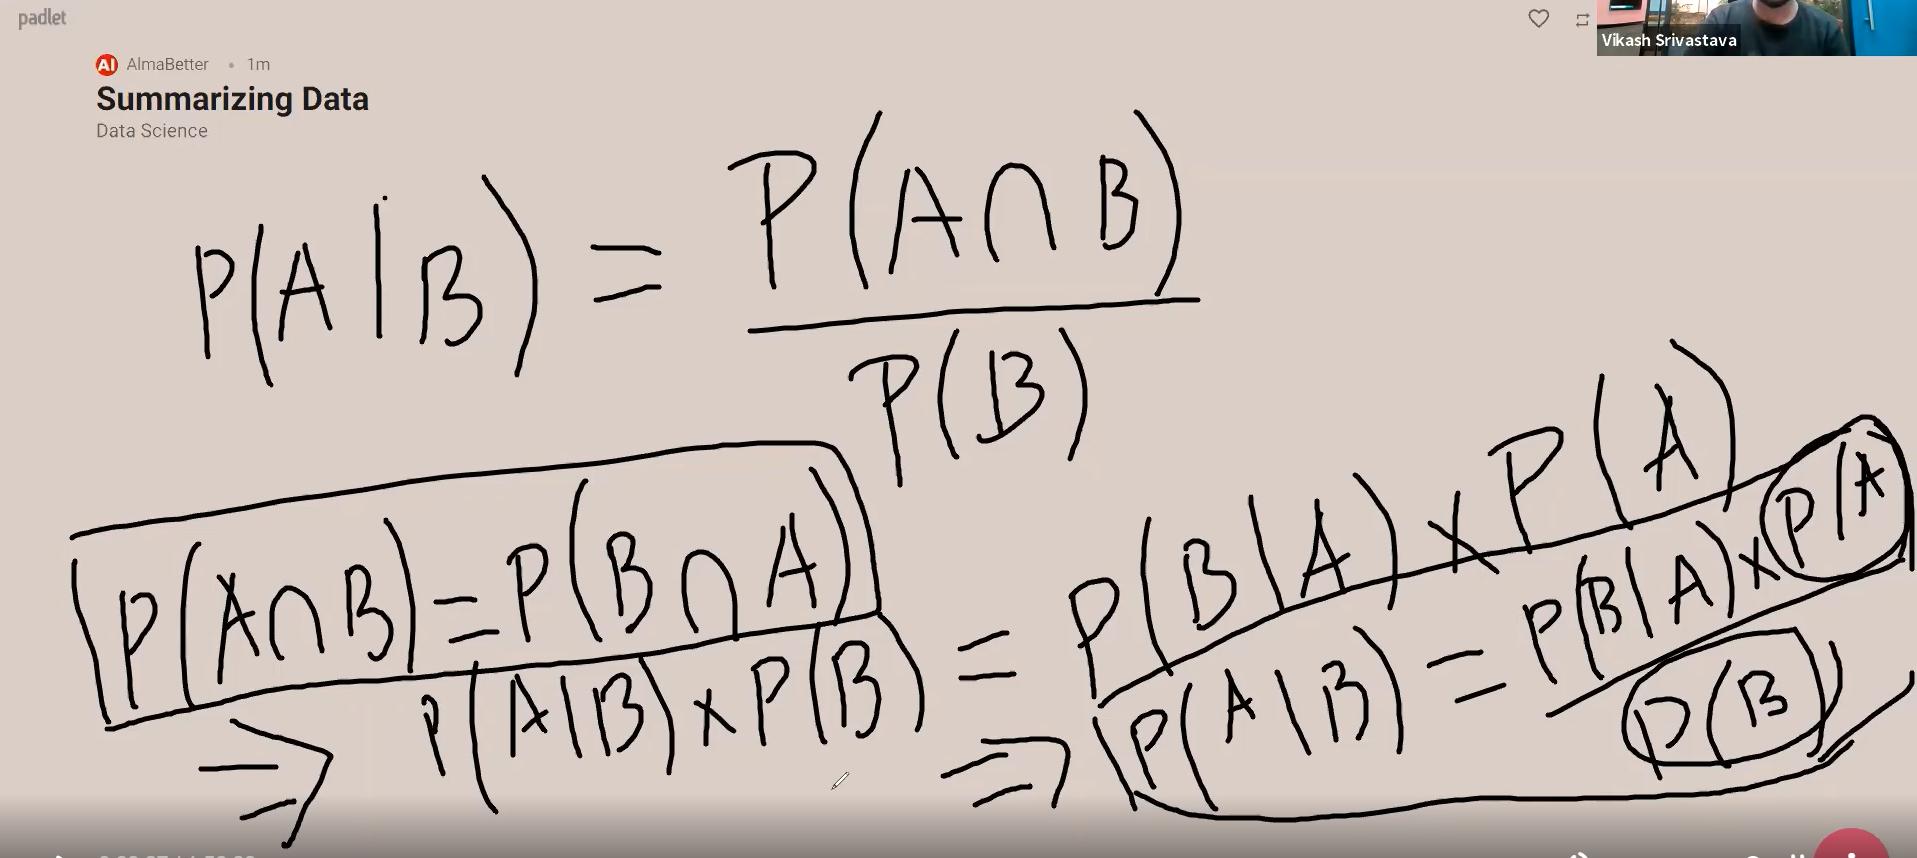 padlet
Vikash Srivastava
AI AlmaBetter • 1m
Summarizing Data
Data Science
P(A|B) = P(A∩B)
P(B)
P(A∩B) = P(B∩A)
⇒ P(A|B) × P(B) = P(B|A) × P(A)
⇒ P(A|B) = P(B|A) × P(A
P(B)